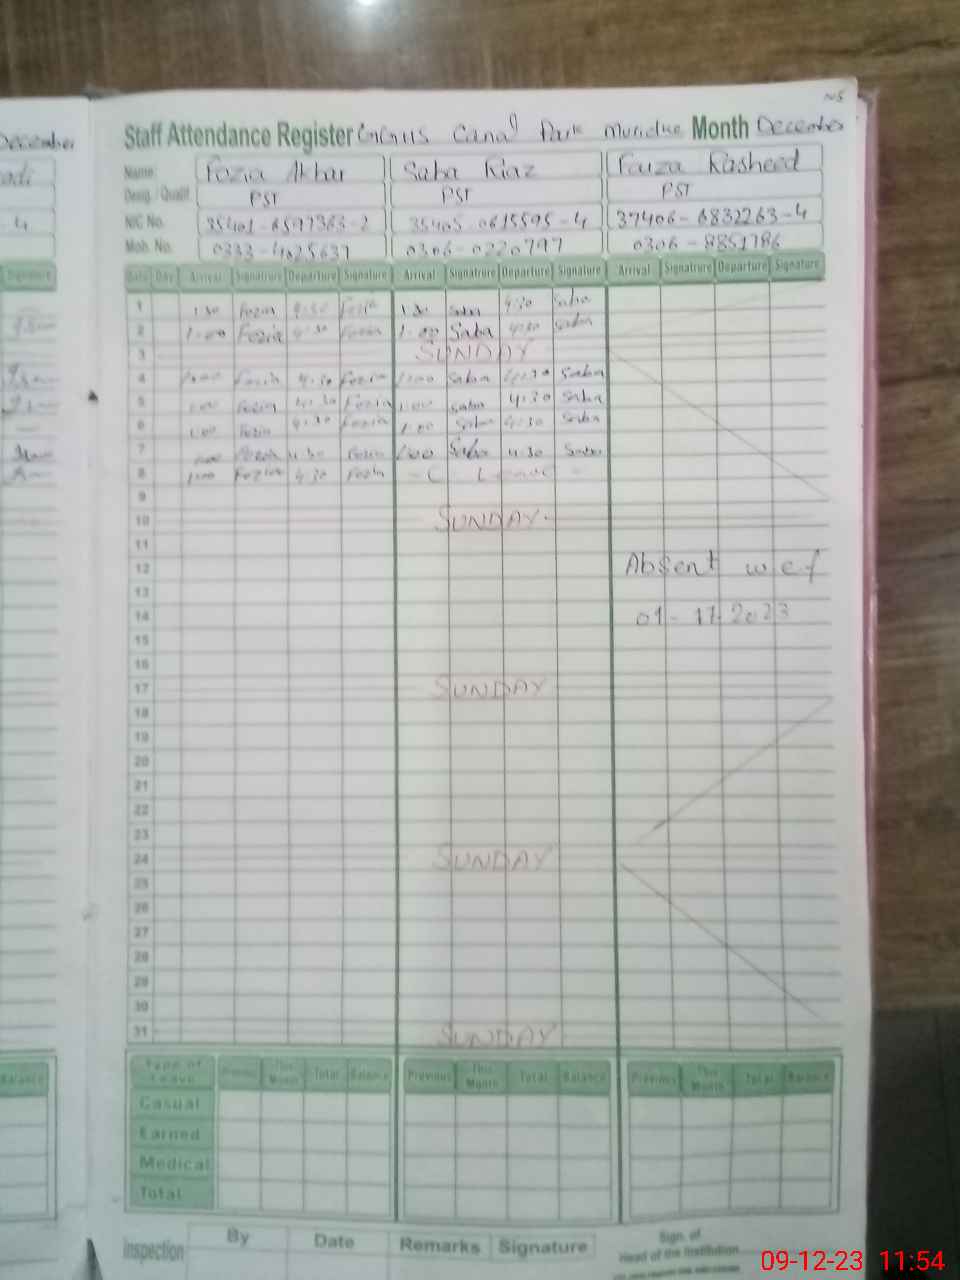 December
Staff Attendance Register Canal Park Muridke Month December
Name Fozia Akbar Saba Riaz Faiza Rasheed
Desig / Qualif. PST PST PST
NIC No. 35401-6597363-2 35405-0615595-4 37406-6832263-4
Mob. No. 0333-4025637 0306-0220797 0306-8851786
Signature Date Day Arrival Signatrure Departure Signature Arrival Signatrure Departure Signature Arrival Signatrure Departure Signature
1 1 30 Fozia 4:30 Fozia 1 30 Saba 4:30 Saba
2 1:00 Fozia 4:30 Fozia 1:00 Saba 4:30 Saba
3 SUNDAY
4 1:00 Fozia 4:30 Fozia 1:00 Saba 4:30 Saba
5 1:00 Fozia 4:30 Fozia 1:00 Saba 4:30 Saba
6 1:00 Fozia 4:30 Fozia 1:00 Saba 4:30 Saba
7 1:00 Fozia 4:30 Fozia 1:00 Saba 4:30 Saba
8 1:00 Fozia 4:30 Fozia - C Leave -
9
10 SUNDAY.
11
12 Absent w e f
13
14 01-12-2023
15
16
17 SUNDAY
18
19
20
21
22
23
24 SUNDAY
25
26
27
28
29
30
31 SUNDAY
Balance Type of Leave Previous This Month Total Balance Previous This Month Total Balance Previous This Month Total Balance
Casual
Earned
Medical
Total
Inspection By Date Remarks Signature Sign. of Head of the Institution
09-12-23 11:54